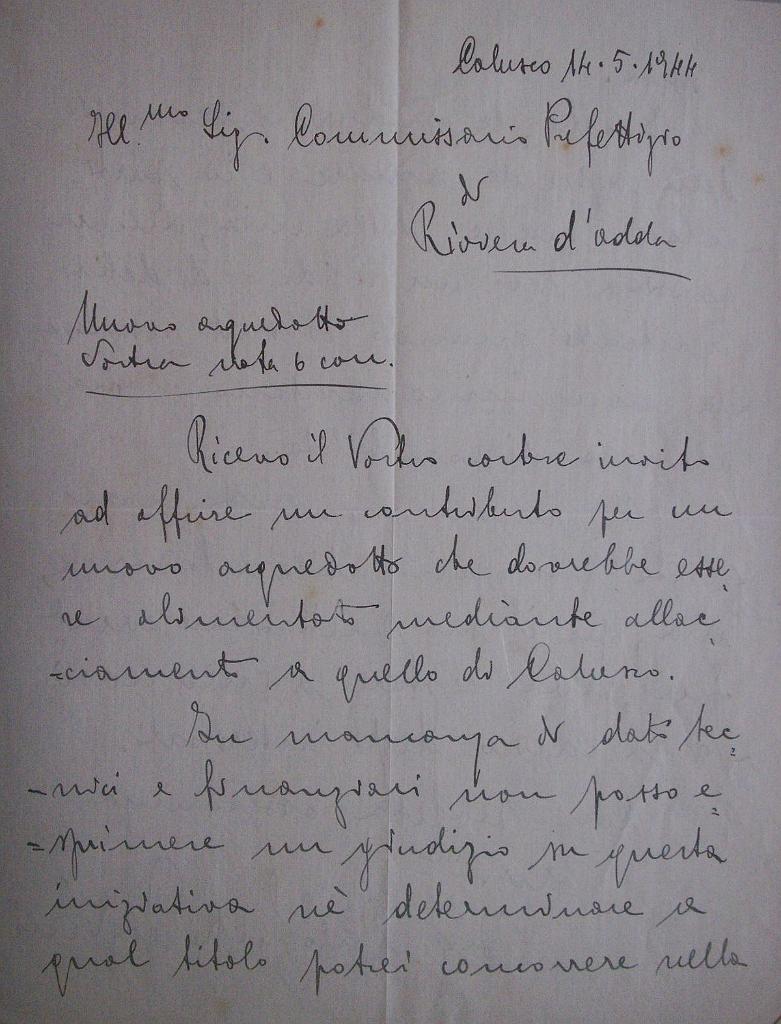 Calusco 14.5.1944
Ill.mo Sig. Commissario Prefettizio
di
Riviera d'adda
Nuovo acquedotto
Vostra nota 6 corr.
Ricevo il Vostro cortese invito
ad offrire un contributo per un
nuovo acquedotto che dovrebbe esse
re alimentato mediante allac
=ciamento a quello di Calusco.
In mancanza di dati tec=
=nici e finanziari non posso e=
=sprimere un giudizio su questa
iniziativa nè determinare a
qual titolo potrei concorrere nella